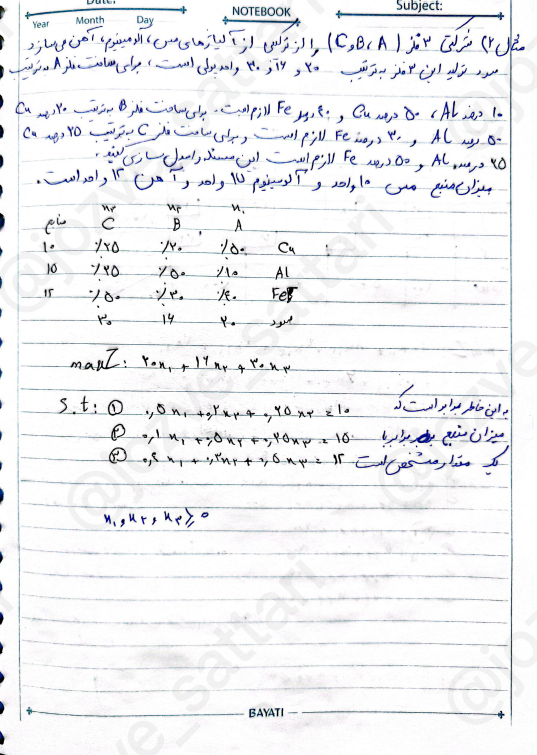 Date:
NOTEBOOK
Subject:
Year Month Day
مثال ۲) شرکتی ۳ فلز (C, B, A) را از ترکیبی از آلیاژهای مس، آلومینیوم، آهن می سازد
سود تولید این ۳ فلز به ترتیب ۲۰ و ۱۶ و ۳۰ واحد پولی است، برای ساخت فلز A به ترتیب
۱۰ درصد AL، ۵۰ درصد Cu و ۴۰ درصد Fe لازم است. برای ساخت فلز B به ترتیب ۲۰ درصد Cu
۵۰ درصد AL و ۳۰ درصد Fe لازم است و برای ساخت فلز C به ترتیب ۲۵ درصد Cu
۲۵ درصد AL و ۵۰ درصد Fe لازم است این مسئله را مدل سازی کنید.
میزان منبع مس ۱۰ واحد و آلومینیوم ۱۵ واحد و آهن ۱۲ واحد است.
x₃ x₂ x₁
منابع C B A
۱۰ ٪۲۵ ٪۲۰ ٪۵۰ Cu
۱۵ ٪۲۵ ٪۵۰ ٪۱۰ AL
۱۲ ٪۵۰ ٪۳۰ ٪۴۰ Fe
۳۰ ۱۶ ۲۰ سود
max Z: ۲۰x₁ + ۱۶x₂ + ۳۰x₃
S.t: ① ۰,۵x₁ + ۰,۲x₂ + ۰,۲۵x₃ = ۱۰ به این خاطر برابر است که
② ۰,۱x₁ + ۰,۵x₂ + ۰,۲۵x₃ = ۱۵ میزان منبع برابر با
③ ۰,۴x₁ + ۰,۳x₂ + ۰,۵x₃ = ۱۲ یک مقدار مشخص است
x₁, x₂, x₃ ≥ ۰
BAYATI
@jozve_sattari